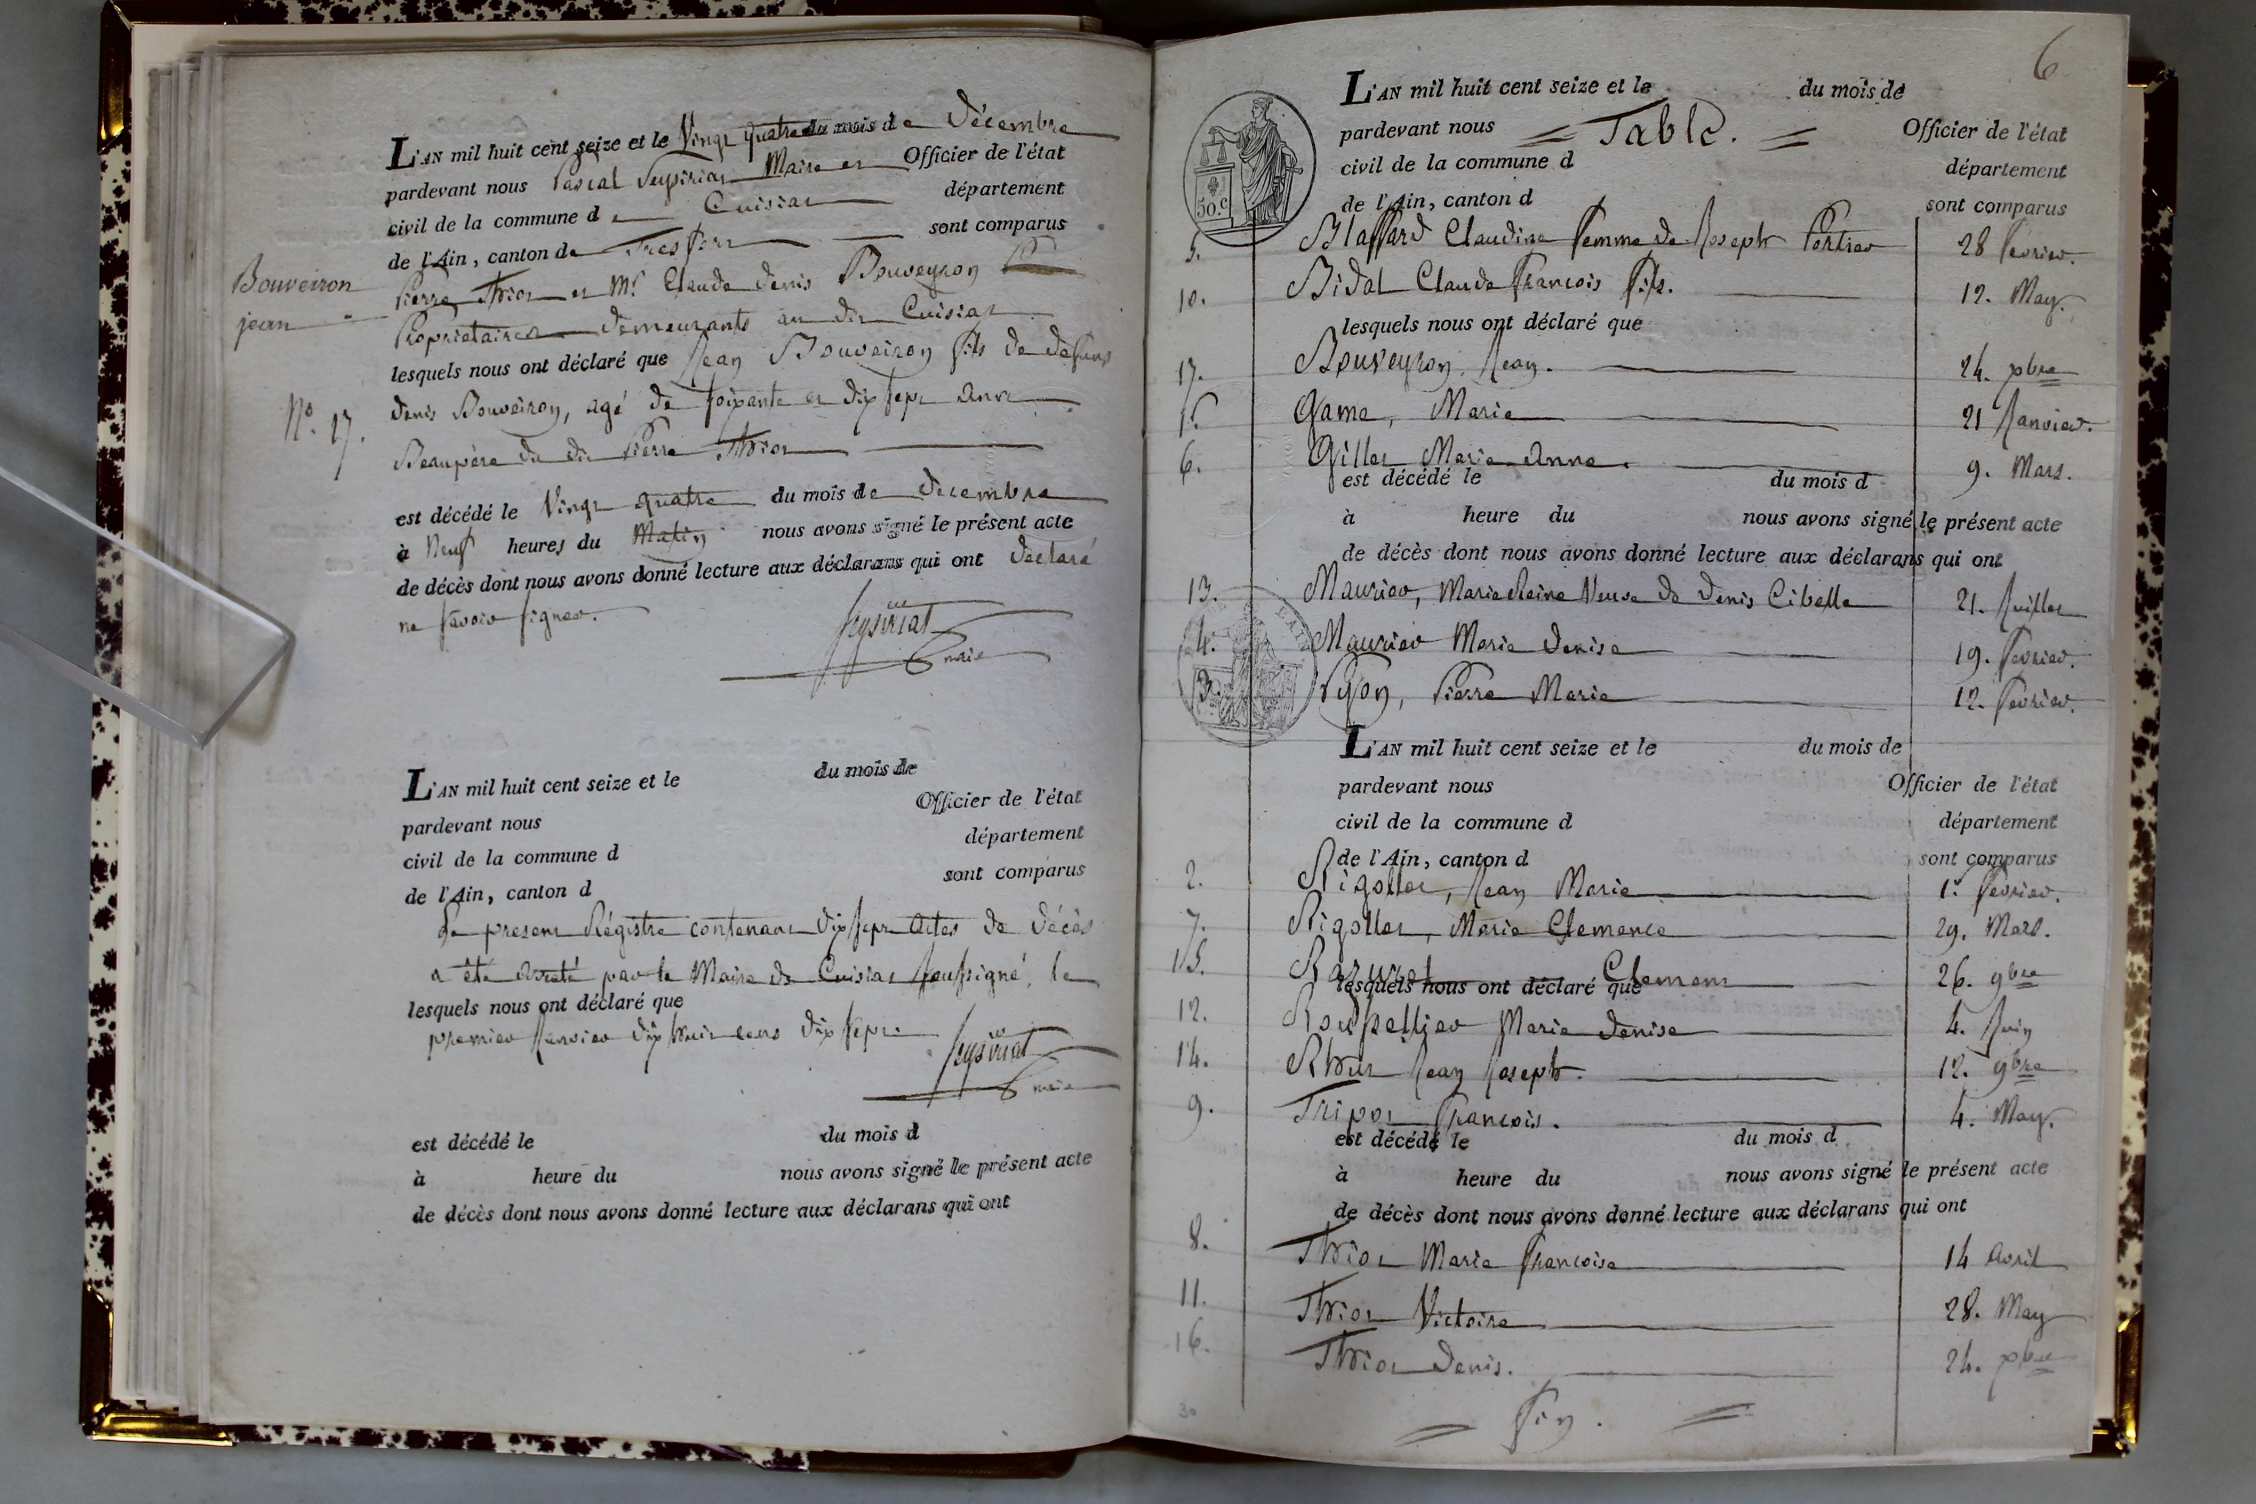 L'AN mil huit cent seize et le Vingt quatre du mois de Décembre
pardevant nous Pascal Seysiriat Maire et Officier de l'état
civil de la commune de Cuisiat département
de l'Ain, canton de Treffort sont comparus
Bouveiron
jean
Pierre Thiot et Mr. Claude denis Bouveyron
Propriétaires demeurants au dit Cuisiat
lesquels nous ont déclaré que Jean Bouveiron fils de défunt
No. 17.
denis Bouveiron, agé de soixante et dix sept ans
Beaupère du dit Pierre Thiot
est décédé le Vingt quatre du mois de decembre
à Neuf heures du Matin nous avons signé le présent acte
de décès dont nous avons donné lecture aux déclarans qui ont declaré
ne savoir signer.
Seysiriat
maire
L'AN mil huit cent seize et le du mois de
pardevant nous Officier de l'état
civil de la commune d département
de l'Ain, canton d sont comparus
Le present Régistre contenant dix sept actes de décès
a été arreté par le Maire de Cuisiat soussigné, le
lesquels nous ont déclaré que
premier Janvier dix huit cent dix sept.
Seysiriat
maire
est décédé le du mois d
à heure du nous avons signé le présent acte
de décès dont nous avons donné lecture aux déclarans qui ont
6
L'AN mil huit cent seize et le du mois de
pardevant nous Table. Officier de l'état
civil de la commune d département
de l'Ain, canton d sont comparus
50.c
5. Blaffard Claudine femme de Joseph Portier 28 fevrier.
10. Bidat Claude francois fils. 12. May.
lesquels nous ont déclaré que
17. Bouveyron, Jean. 24. xbre
1. Game, Marie 21 Janvier.
6. Gillet Marie Anne. 9. Mars.
est décédé le du mois d
à heure du nous avons signé le présent acte
de décès dont nous avons donné lecture aux déclarans qui ont
13. Maurier, Marie Reine Veuve de Denis Cibelle 21. Juillet
4. Maurier Marie denise 19. fevrier.
3. Pyon, Pierre Marie 12. fevrier.
L'AN mil huit cent seize et le du mois de
pardevant nous Officier de l'état
civil de la commune d département
de l'Ain, canton d sont comparus
2. Rigollet, Jean Marie 1.er fevrier.
7. Rigollet, Marie Clemence 29. Mars.
15. Clement 26. 9bre
lesquels nous ont déclaré que
12. Roupellier Marie denise 4. Juin
14. Jean Joseph. 12. 9bre
9. Tripot francois. 4. May.
est décédé le du mois d
à heure du nous avons signé le présent acte
de décès dont nous avons donné lecture aux déclarans qui ont
8. Thiot Marie francoise 14 avril
11. Thiot Victoire 28. May
16. Thiot denis. 24. xbre
30
fin.